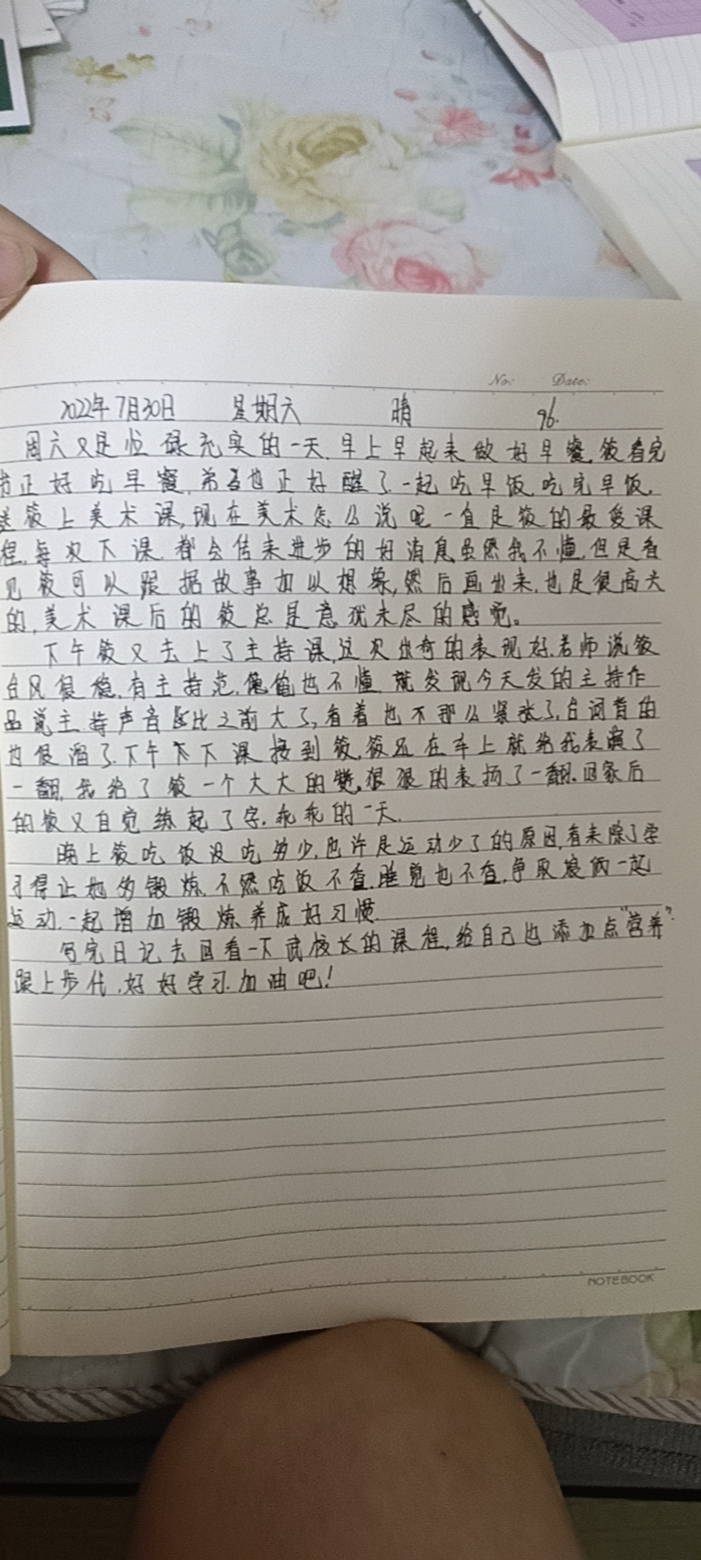 No: Date:
2022年7月30日 星期六 晴 96.
周六又是忙碌充实的一天.早上早起来做好早餐,筱看完
书正好吃早餐.弟弟也正好醒了.一起吃早饭.吃完早饭.
送筱上美术课,现在美术怎么说呢一直是筱的最爱课
程.每次下课.都会传来进步的好消息虽然我不懂.但是看
见筱可以跟据故事加以想象,然后画出来.也是很高兴
的.美术课后的筱总是意犹未尽的感觉。
下午筱又去上了主持课,这次出奇的表现好.老师说筱
台风很稳.有主持范.俺啥也不懂.就发现今天发的主持作
品说主持声音比之前大了,看着也不那么紧张了.台词背的
也很溜了.下午下课接到筱.筱又在车上就给我表演了
一翻.我给了筱一个大大的赞.狠狠的表扬了一翻.回家后
的筱又自觉练起了字.乖乖的一天.
晚上筱吃饭没吃多少.也许是运动少了的原因.看来除了学
习得让她多锻炼.不然吃饭不香.睡觉也不香.争取娘俩一起
运动.一起增加锻炼养成好习惯.
写完日记去回看一下武校长的课程.给自己也添加点"营养"
跟上步伐.好好学习.加油吧!
NOTEBOOK